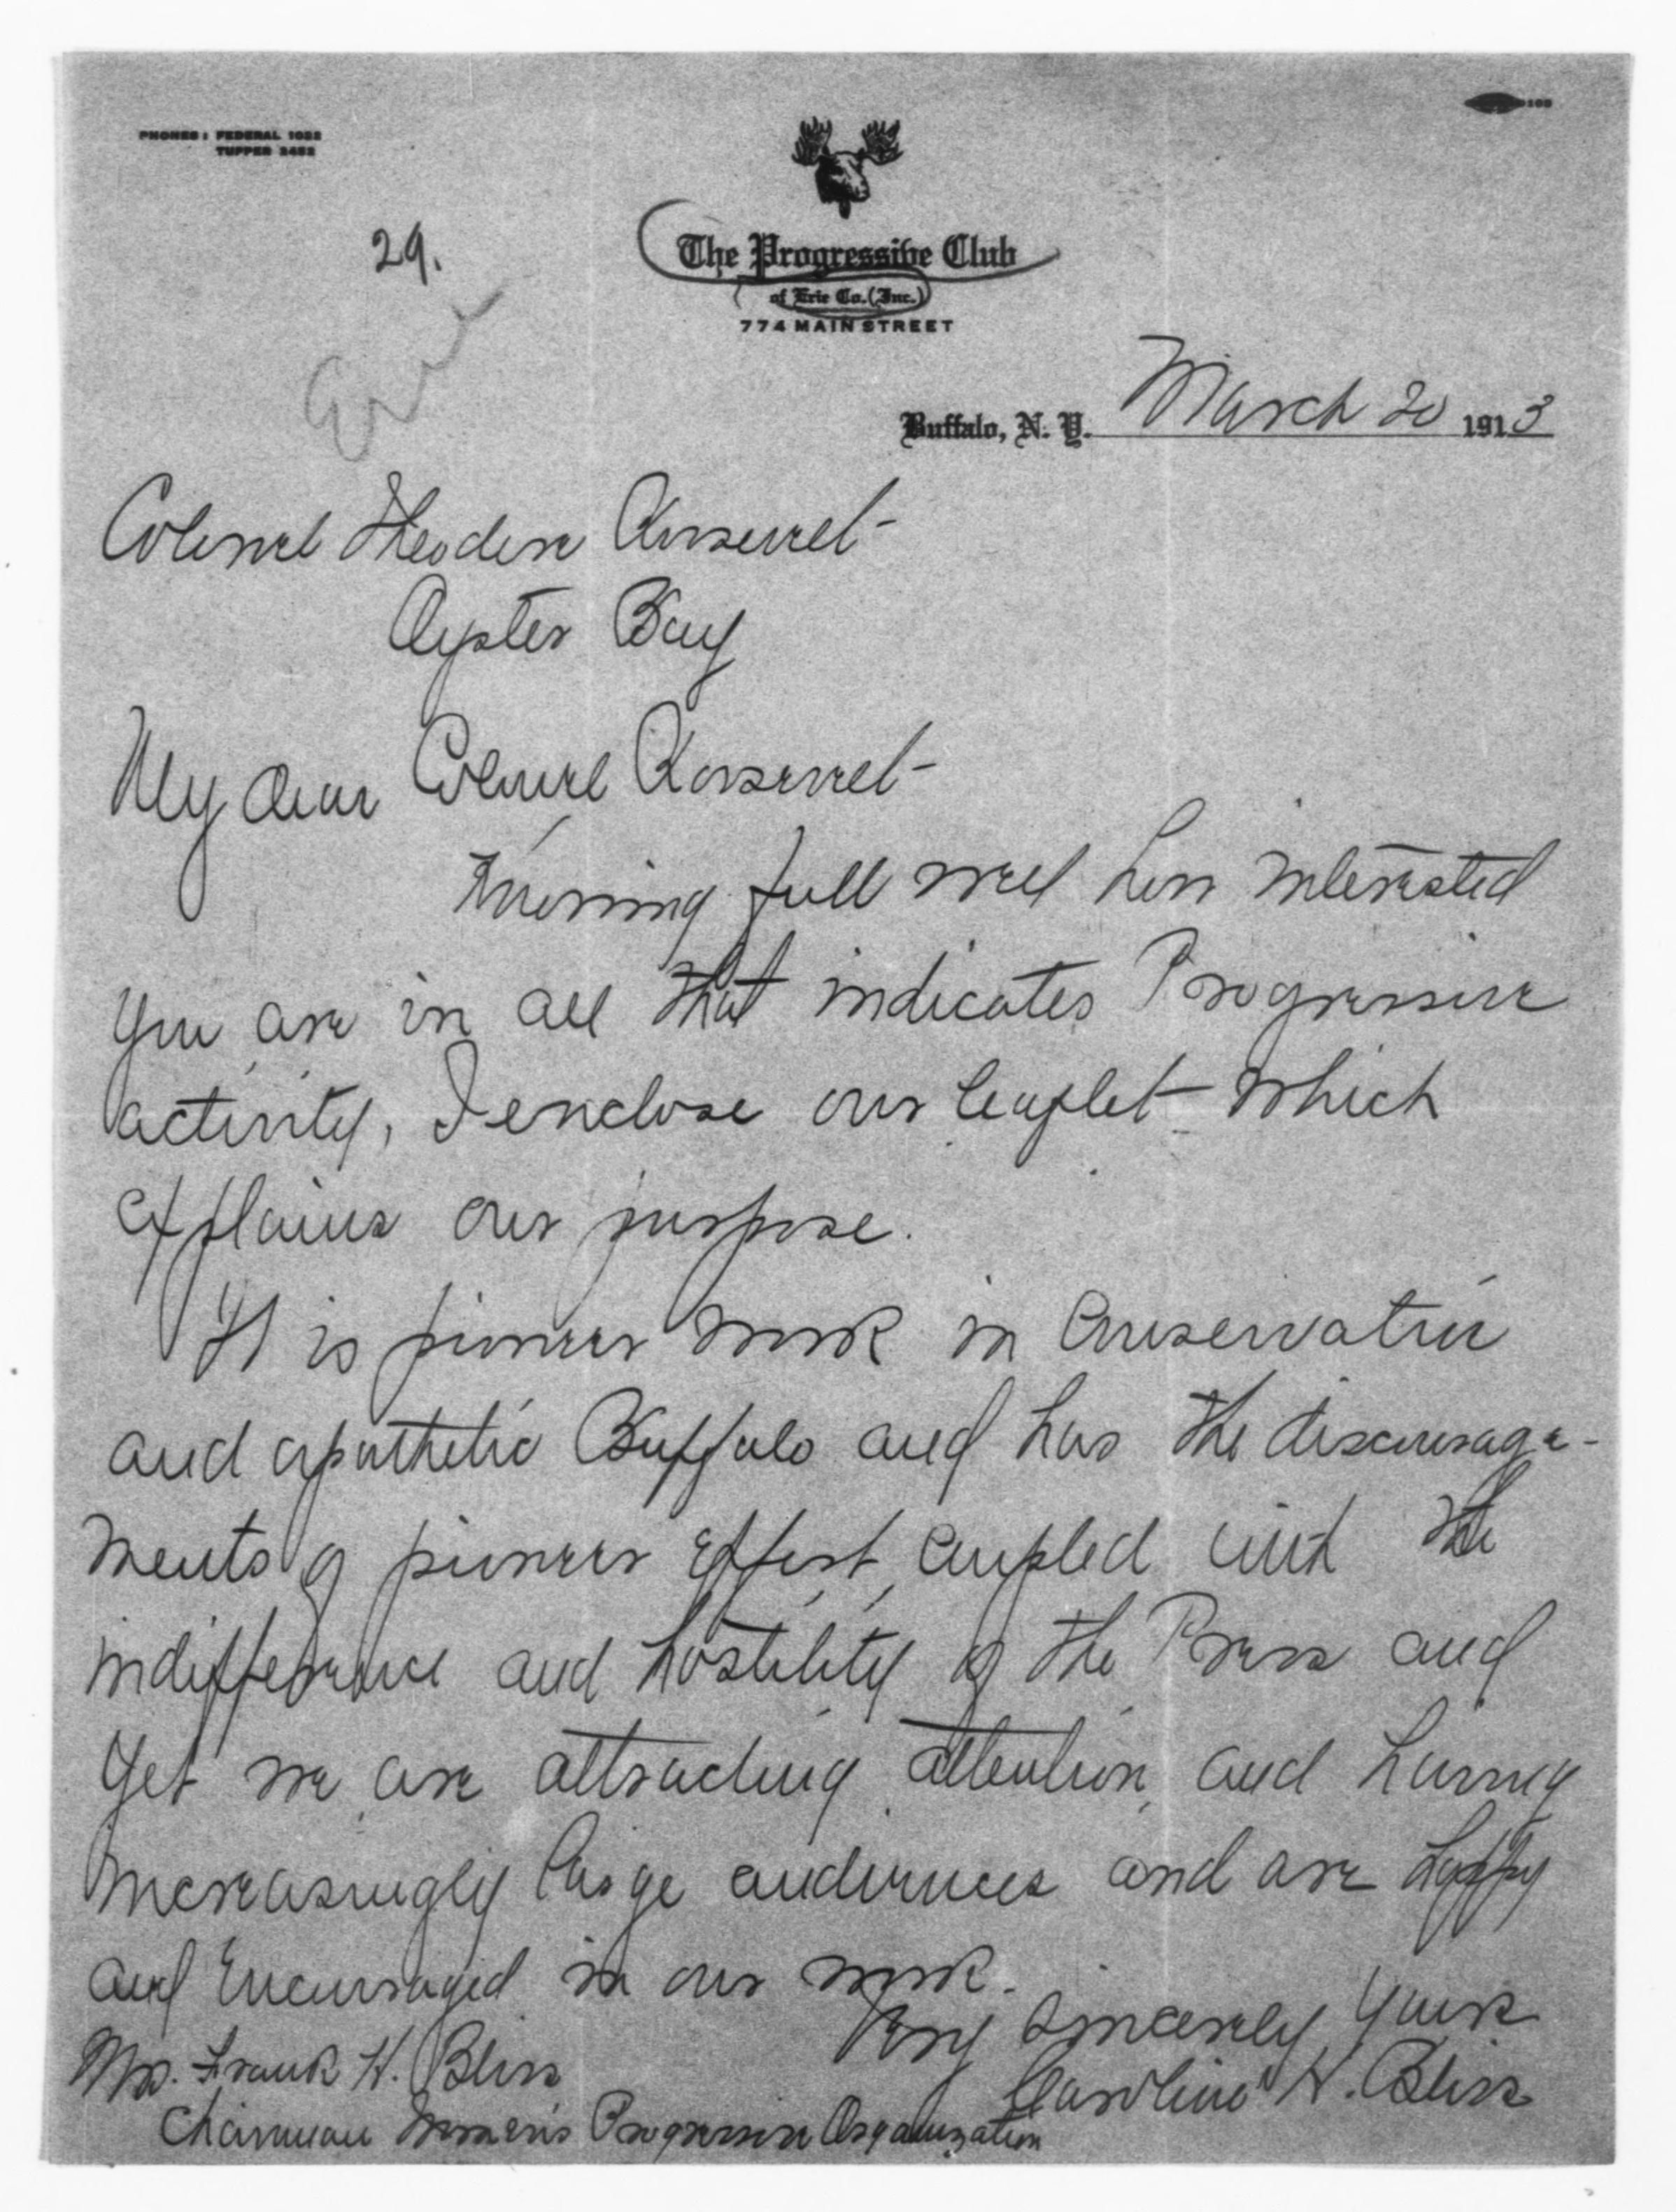 PHONES: FEDERAL 1022
TUPPER 2452
29.
The Progressive Club
of Erie Co. (Inc.)
774 MAIN STREET
Buffalo, N. Y. March 20 1913
Colonel Theodore Roosevelt-
Oyster Bay
My dear Colonel Roosevelt-
Knowing full well how interested
you are in all that indicates Progressive
activity, I enclose our leaflet which
explains our purpose.
It is pioneer work in Conservative
and apathetic Buffalo and has the discourage-
ments of pioneer effort, coupled with the
indifference and hostility of the Press and
yet we are attracting attention, and having
increasingly large audiences and are happy
and encouraged in our work.
Very Sincerely Yours
Caroline H. Bliss
Mrs. Frank H. Bliss
Chairman Women's Progressive Organization